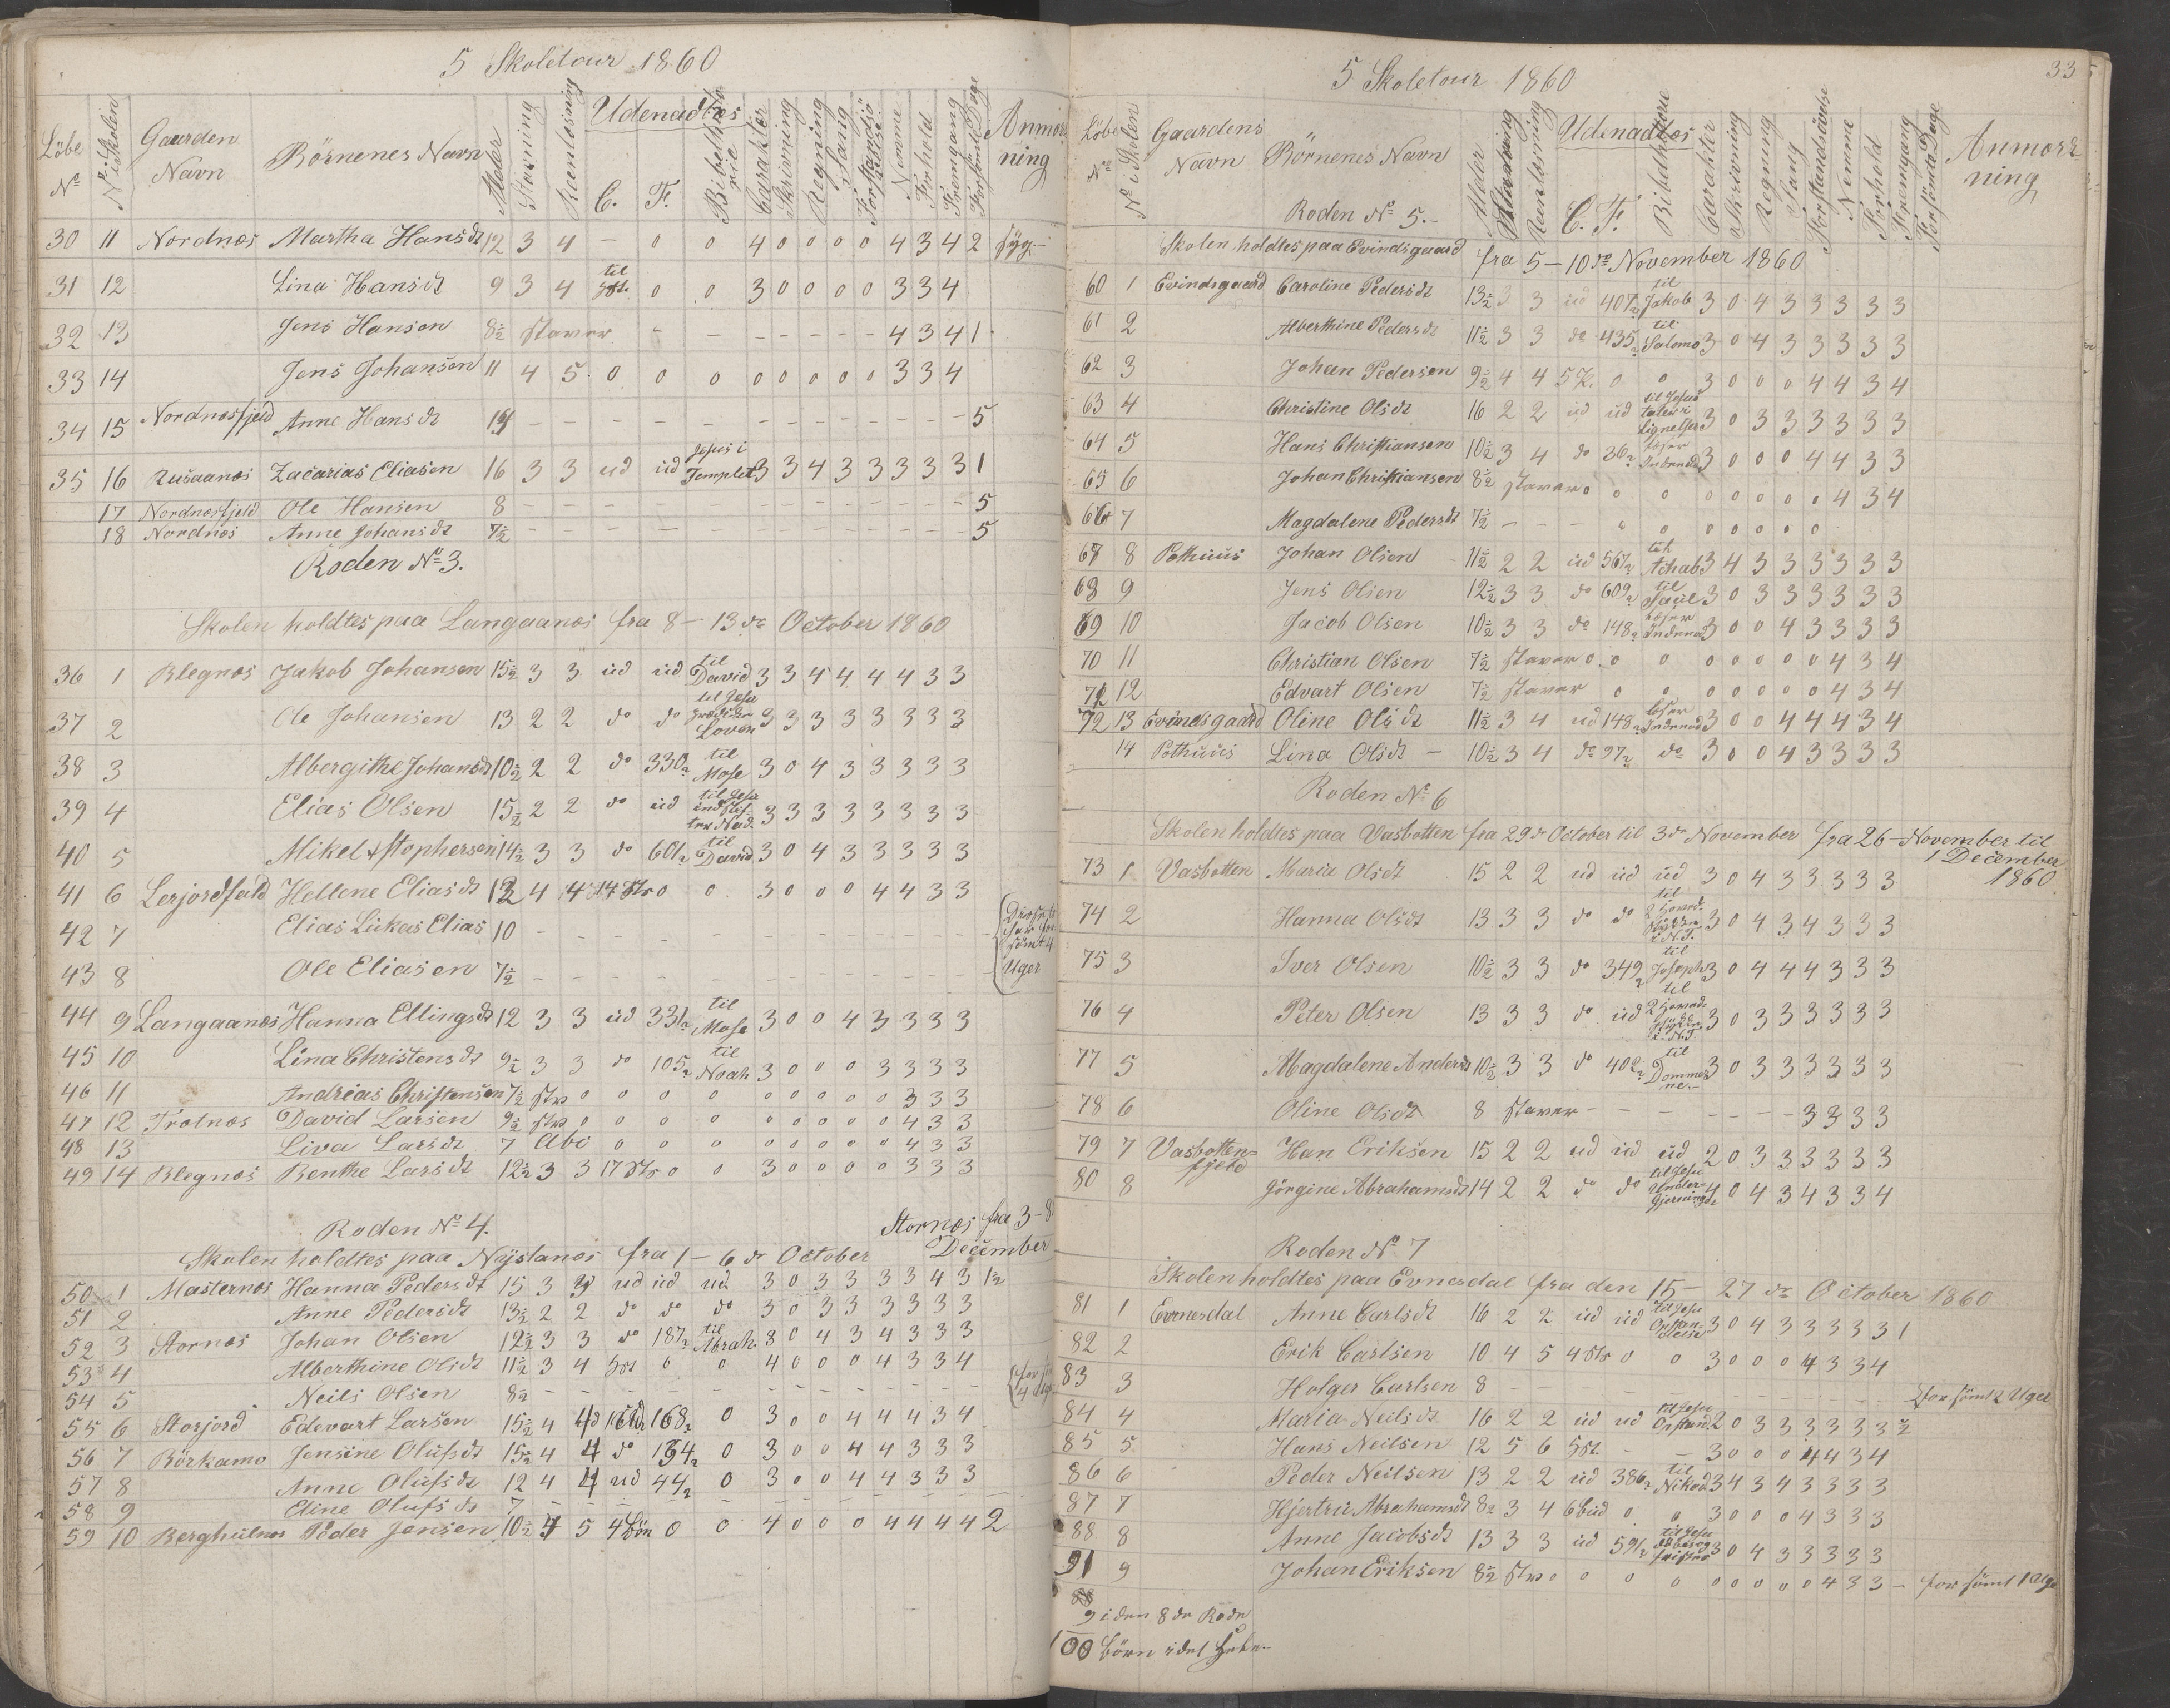 5 Skoletour 1860
Löbe No | No i Skolen | Gaarden Navn | Börnenes Navn | Alder | Stavning | Reenlæsning | Udenadlæs C. F. Bibelhistorie | Carakter | Skrivning | Regning | Sang | Forstandsö | Nemme | Forhold | Fremgang | Forsömte Dage | Anmærkning
30 11 Nordnæs Martha Hansdt 12 3 4 – 0 0 4 0 0 0 0 4 3 4 2 syg
31 12 Lina Hansdt 9 3 4 til 0 0 3 0 0 0 0 3 3 4
32 13 Jens Hansen 8½ staver – – – – – – – 4 3 4 1
33 14 Jens Johansen 11 4 5 0 0 0 0 0 0 0 0 3 3 4
34 15 Nordnæsfjeld Anne Hansdt – – – – – – – – – – – 5
35 16 Rusaanæs Zacarias Eliasen 16 3 3 ud ud Jesus i Templet 3 3 4 3 3 3 3 3 1
17 Nordnæsfjeld Ole Hansen 8 – – – – – – – – – 5
18 Nordnæs Anne Johansdt 7½ – – – – – 5
Roden No 3.
Skolen holdtes paa Langaanæs fra 8 – 13de October 1860
36 1 Blegnæs Jakob Johansen 15½ 3 3 ud ud til David 3 3 4 4 4 4 3 3
37 2 Ole Johansen 13 2 2 do do til Jesu Loven 3 3 3 3 3 3 3 3
38 3 Albergithe Johansdt 10½ 2 2 do 330 til Mose 3 0 4 3 3 3 3 3
39 4 Elias Olsen 15½ 2 2 do ud til Jesu indstifter Nad. 3 3 3 3 3 3 3 3
40 5 Mikel 14½ 3 3 do 601 til David 3 0 4 3 3 3 3 3
41 6 Lerjordfald Hellene Eliasdt 12 4 4 14 Str 0 0 3 0 0 0 4 4 3 3
42 7 Elias Lukas Elias 10 – – – – – – – –
43 8 Ole Eliasen 7½ – – – – – – – – Uger
44 9 Langaanæs Hanna Ellingsdt 12 3 3 ud 331 til Mose 3 0 0 4 3 3 3 3
45 10 Lina Christensdt 9½ 3 3 do 105 til Noah 3 0 0 0 3 3 3 3
46 11 Andreas Christensen 7½ stv 0 0 0 0 0 0 0 0 0 3 3 3
47 12 Trotnæs David Larsen 9½ stv 0 0 0 0 0 0 0 0 0 4 3 3
48 13 Liva Larsdt 7 Abc 0 0 0 0 0 0 0 0 4 3 3
49 14 Blegnæs Benthe Larsdt 12½ 3 3 17 Str 0 0 3 0 0 0 0 3 3 3
Roden No 4.
Stornæs fra 3–8 December
Skolen holdtes paa Nystanæs fra 1 – 6 de October
50 1 Masternæs Hanna Pedersdt 15 3 3 ud ud ud 3 0 3 3 3 3 4 3 1½
51 2 Anne Pedersdt 13½ 2 2 do do do 3 0 3 3 3 3 3 3
52 3 Stornæs Johan Olsen 12½ 3 3 do 187 til Abrah. 3 0 4 3 4 3 3 3
53 4 Alberthine Olsdt 11½ 3 4 5st 0 0 4 0 0 0 4 3 3 4
54 5 Neils Olsen 8½ – – – – – – – – – – –
55 6 Storjord Edevart Larsen 15½ 4 4 168 0 3 0 0 4 4 4 3 4
56 7 Börkamo Jensine Olufsdt 15½ 4 4 do 134 0 3 0 0 4 4 3 3 3
57 8 Anne Olufsdt 12 4 4 ud 44 0 3 0 0 4 4 3 3 3
58 9 Eline Olufsdt 7 – – – – – – – –
59 10 Berghulnæs Peder Jensen 10½ 4 5 4 Bön 0 0 4 0 0 0 4 4 4 4 2
33
5 Skoletour 1860
Löbe No | No i Skolen | Gaardens Navn | Börnenes Navn | Alder | Stavning | Reenlæsning | Udenadlæs C. F. Bibelhistorie | Carakter | Skrivning | Regning | Sang | Forstandsövelse | Nemme | Forhold | Fremgang | Forsömte Dage | Anmærkning
Roden No 5.
Skolen holdtes paa Evindsgaard fra 5 – 10de November 1860
60 1 Evindsgaard Caroline Pedersdt 13½ 3 3 ud 407 til Jakob 3 0 4 3 3 3 3 3
61 2 Alberthine Pedersdt 11½ 3 3 do 435 til Salomo 3 0 4 3 3 3 3 3
62 3 Johan Pedersen 9½ 4 4 5 0 0 3 0 0 0 4 4 3 4
63 4 Christine Olsdt 16 2 2 ud ud til Jesus taler i Lignelser 3 0 3 3 3 3 3 3
64 5 Hans Christiansen 10½ 3 4 do 36 læser Indenad 3 0 0 0 4 4 3 3
65 6 Johan Christiansen 8½ staver 0 0 0 0 0 0 0 0 4 3 4
66 7 Magdalene Pedersdt 7½ – – – 0 0 0 0 0 0 0
67 8 Pothuus Johan Olsen 11½ 2 2 ud 567 til Achab 3 4 3 3 3 3 3 3
68 9 Jens Olsen 12½ 3 3 do 609 til Saul 3 0 3 3 3 3 3 3
69 10 Jacob Olsen 10½ 3 3 do 148 læser Indenad 3 0 0 4 3 3 3 3
70 11 Christian Olsen 7½ staver 0 0 0 0 0 0 0 0 4 3 4
71 12 Edvart Olsen 7½ staver 0 0 0 0 0 0 0 4 3 4
72 13 Evindsgaard Oline Olsdt 11½ 3 4 ud 148 læser Indenad 3 0 0 4 4 4 3 4
14 Pothuus Lina Olsdt – 10½ 3 4 do 97 do 3 0 0 4 3 3 3 3
Roden No 6
Skolen holdtes paa Vasbotten fra 29de October til 3de November fra 26 – November til 1 December 1860
73 1 Vasbotten Maria Olsdt 15 2 2 ud ud ud 3 0 4 3 3 3 3 3
74 2 Hanna Olsdt 13 3 3 do do til 2 3 0 4 3 4 3 3 3
75 3 Iver Olsen 10½ 3 3 do 349 til Joseph 3 0 4 4 4 3 3 3
76 4 Peter Olsen 13 3 3 do ud til 2 3 0 3 3 3 3 3 3
77 5 Magdalene Andersdt 10½ 3 3 do 402 til Dommerne 3 0 3 3 3 3 3 3
78 6 Oline Olsdt 8 staver – – – – – – – 3 3 3 3
79 7 Vasbottenfjeld Han Eriksen 15 2 2 ud ud ud 2 0 3 3 3 3 3 3
80 8 Görgine Abrahamsdt 14 2 2 do do til Jesu Undergjerninger 4 0 4 3 4 3 3 4
Roden No 7
Skolen holdtes paa Evnesdal fra den 15 – 27de October 1860
81 1 Evenesdal Anne Carlsdt 16 2 2 ud ud til Jesu Opstandelse 3 0 4 3 3 3 3 3 1
82 2 Erik Carlsen 10 4 5 4 Str 0 0 3 0 0 0 4 3 3 4
83 3 Holger Carlsen 8 – – – – – – – – forsömt 2 Uger
84 4 Maria Neilsdt 16 2 2 ud ud til Jesu Opstand 2 0 3 3 3 3 3 3 ½
85 5 Hans Neilsen 12 5 6 5st. – – 3 0 0 0 4 4 3 4
86 6 Peder Neilsen 13 2 2 ud 386 til Nikod 3 4 3 4 3 3 3 3
87 7 Hjertru Abrahamsdt 8½ 3 4 6 Bud 0 0 3 0 0 0 4 3 3 3
88 8 Anne Jacobsdt 13 3 3 ud 591 til Jesu 3 0 4 3 3 3 3 3
91 9 Johan Eriksen 8½ stv 0 0 0 0 0 0 0 0 0 4 3 3 – forsömt 1 Uge
88
9 i den 8de Rode
100 börn i det Hele